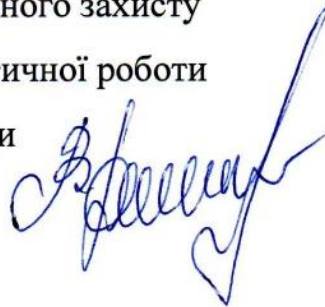 ного захисту
тичної роботи
и